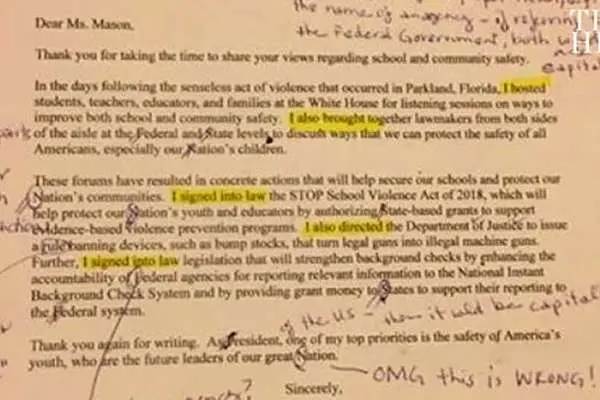 the name of an agency - if referring
the Federal Government, both
Dear Ms. Mason,
TH
HI
Thank you for taking the time to share your views regarding school and community safety.
capital
In the days following the senseless act of violence that occurred in Parkland, Florida, I hosted
students, teachers, educators, and families at the White House for listening sessions on ways to
improve both school and community safety. I also brought together lawmakers from both sides
of the aisle at the Federal and State levels to discuss ways that we can protect the safety of all
Americans, especially our Nation's children.
These forums have resulted in concrete actions that will help secure our schools and protect our
Nation's communities. I signed into law the STOP School Violence Act of 2018, which will
help protect our Nation's youth and educators by authorizing State-based grants to support
evidence-based violence prevention programs. I also directed the Department of Justice to issue
a rule banning devices, such as bump stocks, that turn legal guns into illegal machine guns.
Further, I signed into law legislation that will strengthen background checks by enhancing the
accountability of Federal agencies for reporting relevant information to the National Instant
Background Check System and by providing grant money to States to support their reporting to
the Federal system.
of the US - then it wld be capital
Thank you again for writing. As President, one of my top priorities is the safety of America's
youth, who are the future leaders of our great Nation.
OMG this is WRONG!
Sincerely,